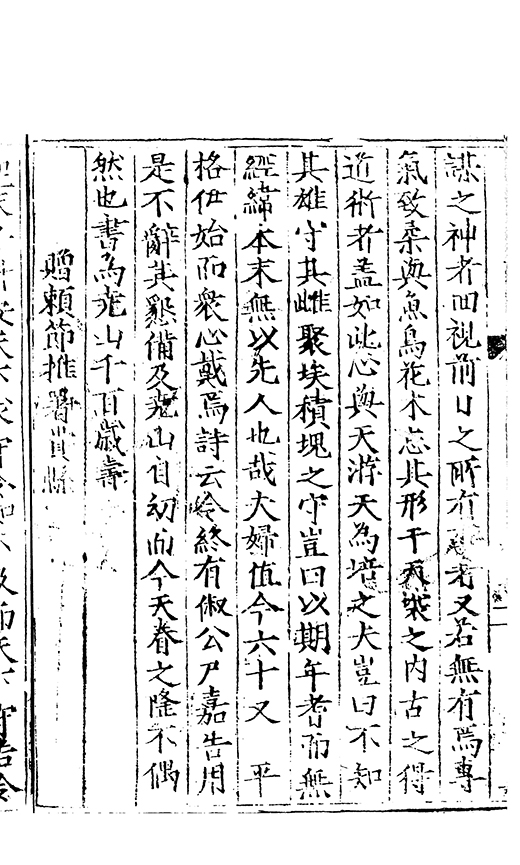 諜之神者回視前日之所有者又若無有焉專
氣致柔與魚鳥花木忘其形于天袠之内古之得
道術者盖如此心與天游天為培之夫豈曰不知
其雄守其雌聚埃積塊之守豈曰以期年耆而無
經緯本末無以先人也哉大婦值今六十又 平
格伊始而衆心戴焉詩云令終有俶公尸嘉告用
是不辭其懇備及堯山自初而今天眷之隆不偶
然也書為堯山千百歲壽
贈賴節推署貰縣